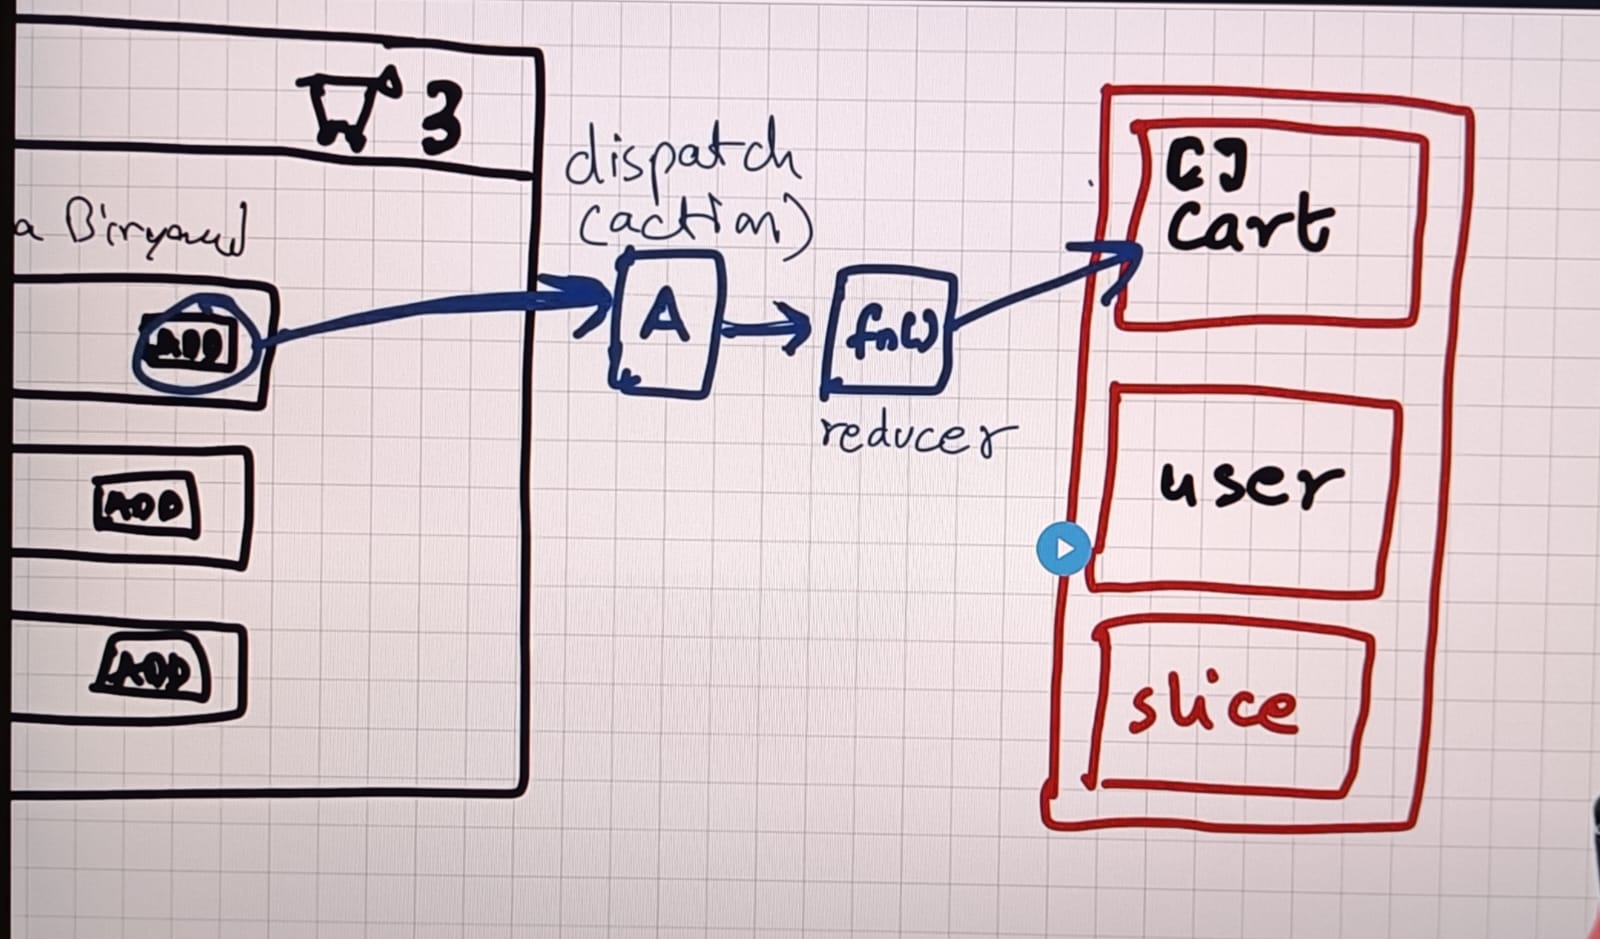 3
a Biryani
ADD
ADD
ADD
dispatch
(action)
A
fn()
reducer
[]
Cart
user
slice